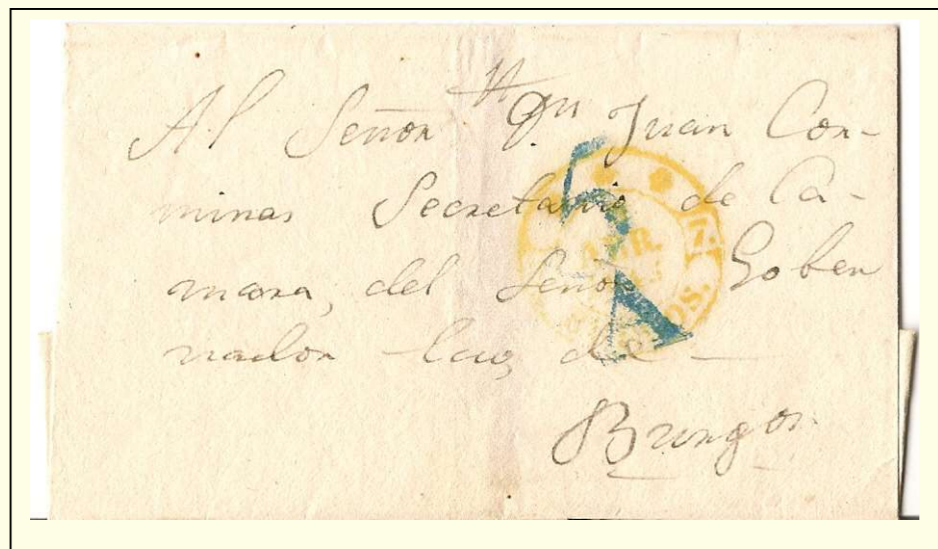 Al Señor Dn Juan Cor-
minas Secretario de Ca-
mara, del Señor Gober
nador de
Burgos